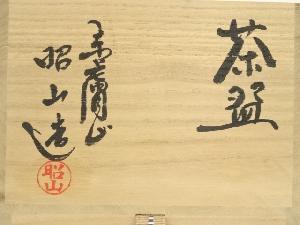 茶盌
赤膚山
昭山造
昭山